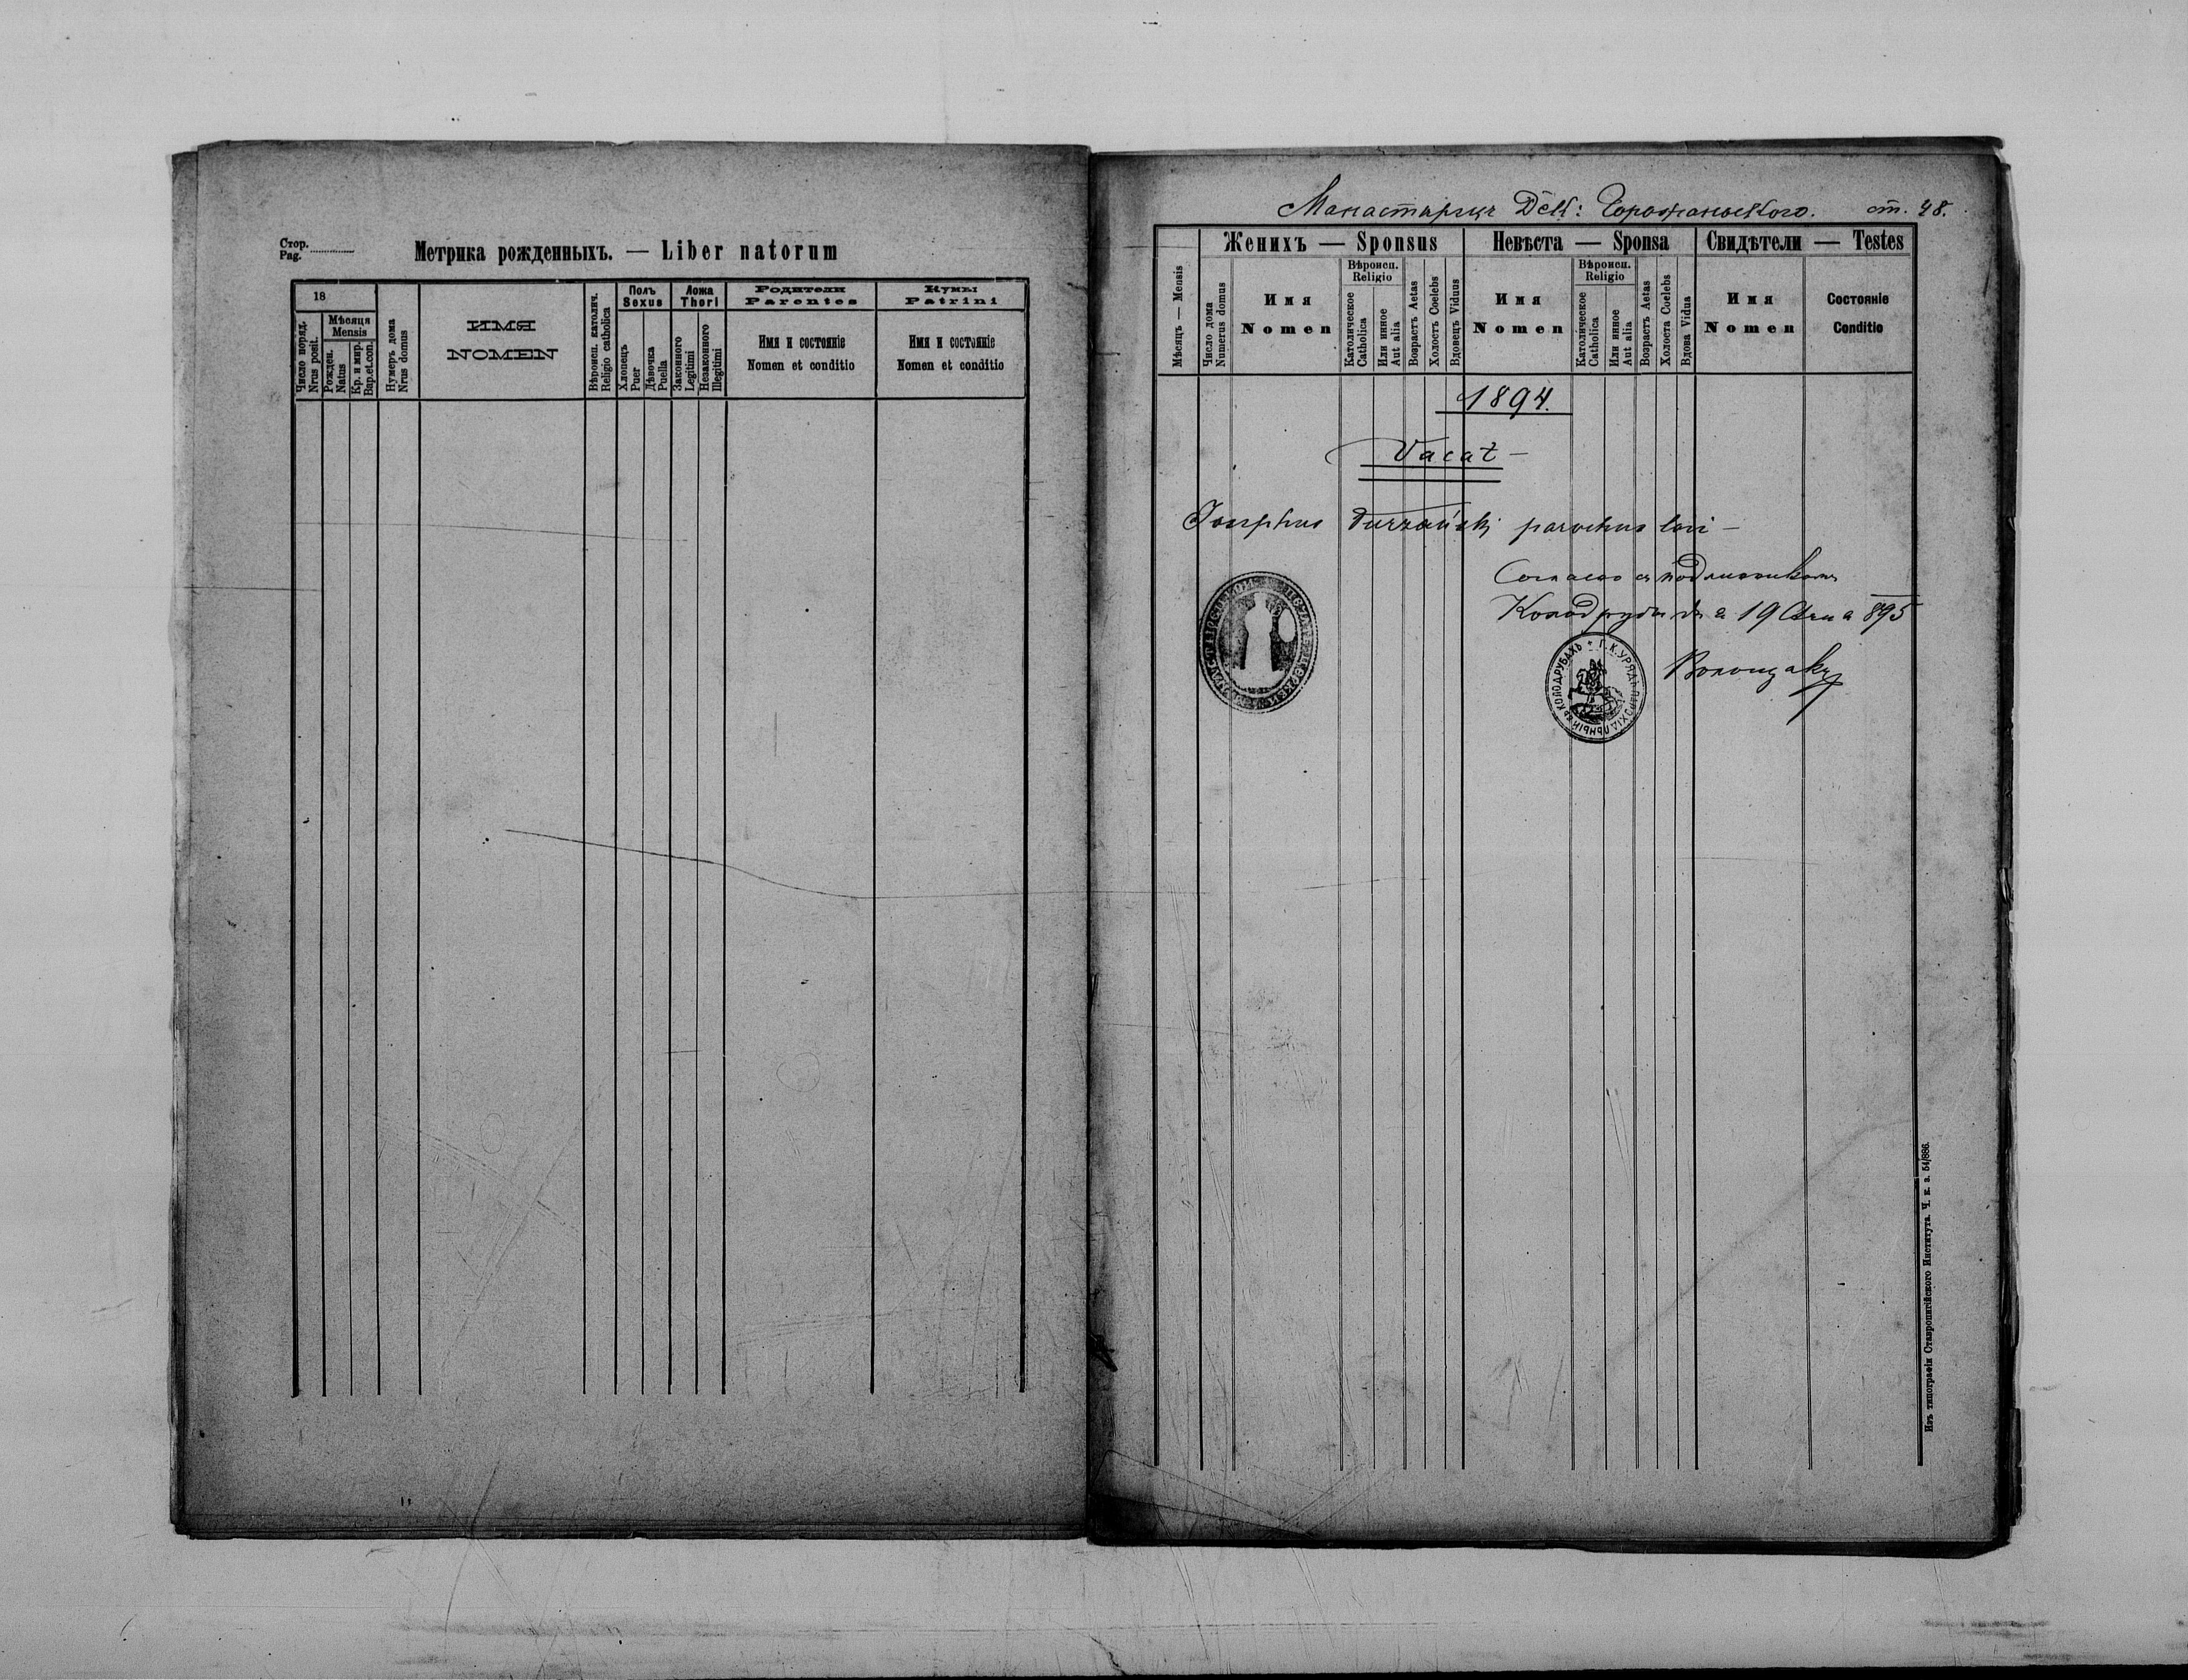 Стор.
Pag.
Метрика рожденныхъ. — Liber natorum
18
Число поряд.
Nrus posit.
Мѣсяця
Mensis
Рожден.
Natus
Кр. и мир.
Bap.et.con.
Нумеръ дома
Nrus domus
ИМЯ
NOMEN
Вѣроисп. католич.
Religio catholica
Полъ
Sexus
Хлопецъ
Puer
Дѣвочка
Puella
Ложа
Thori
Законного
Legitimi
Незаконного
Illegitimi
Родители
Parentes
Имя и состояніе
Nomen et conditio
Кумы
Patrini
Имя и состояніе
Nomen et conditio
Манастырецъ Dek: ст. 48.
Женихъ — Sponsus
Невѣста — Sponsa
Свидѣтели — Testes
Мѣсяцъ — Mensis
Число дома
Numerus domus
Имя
Nomen
Вѣроисп.
Religio
Католическое
Catholica
Или инное
Aut alia
Возрастъ Aetas
Холостъ Coelebs
Вдовецъ Viduus
Имя
Nomen
Вѣроисп.
Religio
Католическое
Catholica
Или инное
Aut alia
Возрастъ Aetas
Холоста Coelebs
Вдова Vidua
Имя
Nomen
Состояніе
Conditio
1894.
Vacat —
Josephus Turzański parochus loci —
Согласно съ подлинникомъ
Колодрубы дня 19 895
Г.К.УРЯДЪ ПАРОХІАЛЬНЫЙ ВЪ КОЛОДРУБАХЪ
Волощакъ
Изъ типографіи Ставропигійского Института. Ч. к. з. 54/886.